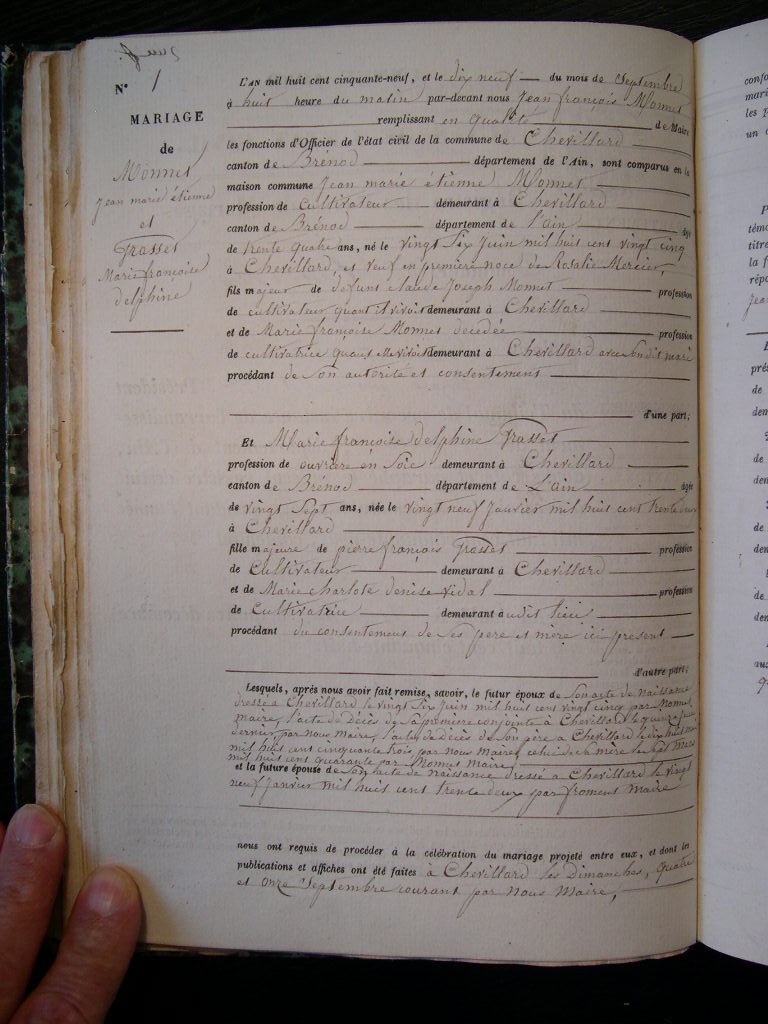 N° 1
MARIAGE
de
Monnet
jean marie étienne
et
Grasset
Marie françoise
delphine
L'AN mil huit cent cinquante-neuf, et le dix neuf du mois de Septembre
à huit heure du matin par-devant nous Jean françois Monnet
remplissant en qualité de Maire
les fonctions d'Officier de l'état civil de la commune de Chevillard
canton de Brénod département de l'Ain, sont comparus en la
maison commune Jean marie étienne Monnet
profession de Cultivateur demeurant à Chevillard
canton de Brénod département de l'ain âgé
de trente quatre ans, né le vingt Six Juin mil huit cent vingt cinq
à Chevillard, et veuf en première noce de Rosalie Mercier,
fils majeur de defunt claude Joseph Monnet profession
de cultivateur quant il vivoit demeurant à Chevillard
et de Marie françoise Monnet decedée profession
de cultivatrice quant elle vivoit demeurant à Chevillard avec Son dit mari
procédant de Son autorité et consentement
d'une part;
Et Marie françoise delphine Grasset
profession de ouvrière en Soie demeurant à Chevillard
canton de Brénod département de L'ain âgée
de vingt Sept ans, née le vingt neuf Janvier mil huit cent trente deux
à Chevillard
fille majeure de pierre françois Grasset profession
de Cultivateur demeurant à Chevillard
et de Marie charlote denise Vidal profession
de Cultivatrice demeurant à udit lieu
procédant du consentement de Ses père et mère ici present
d'autre part;
Lesquels, après nous avoir fait remise, savoir, le futur époux de Son acte de Naissance
dressé à Chevillard le vingt Six Juin mil huit cent vingt cinq par Monnet
maire, l'acte de décès de Sa première conjointe à Chevillard le quinze
dernier par nous Maire, l'acte de décès de Son père à Chevillard le dix huit
mil huit cent cinquante trois par nous Maire, celui de Sa mère le Sept Mars
mil huit cent quarante par Monnet Maire
et la future épouse de Son acte de Naissance dressé à Chevillard le vingt
neuf Janvier mil huit cent trente deux par froment Maire
nous ont requis de procéder à la célébration du mariage projeté entre eux, et dont les
publications et affiches ont été faites à Chevillard les Dimanches, quatre
et onze Septembre courant par Nous Maire,